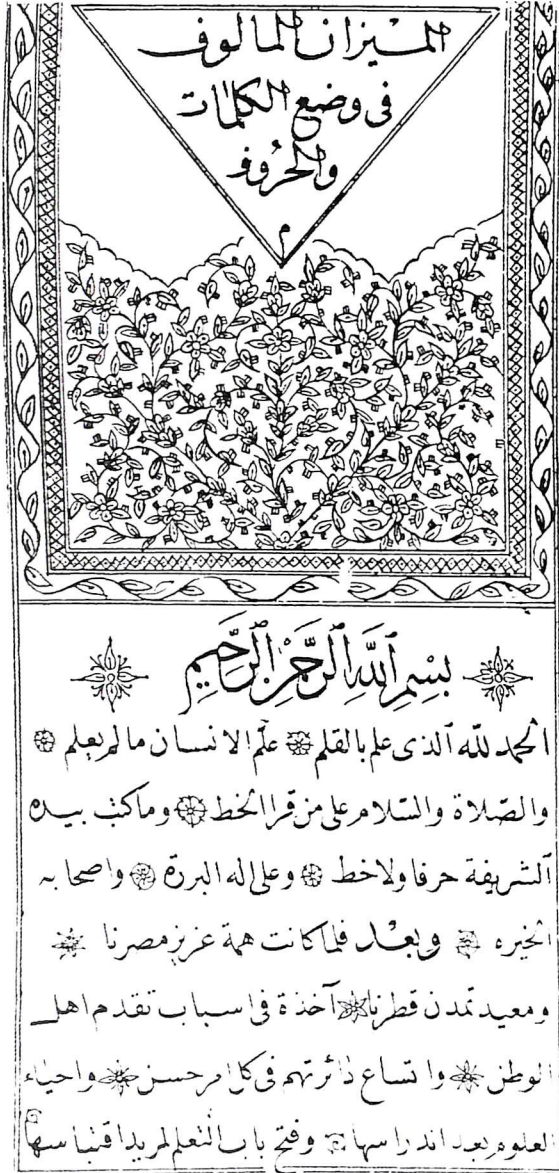 الميزان المالوف
فى وضع الكلمات
والحروف
م
بِسْمِ ٱللَّهِ ٱلرَّحْمَٰنِ ٱلرَّحِيمِ
الحمد لله الذى علم بالقلم علّم الانسان مالم يعلم
والصّلاة والسّلام على من قرا الخط وماكتب بيده
الشريفة حرفا ولاخط وعلى اله البررة واصحابه
الخيره وبعد فلما كانت همة عزيز مصرنا
ومعيد تمدن قطرنا آخذة فى اسباب تقدم اهل
الوطن واتساع دائرتهم فى كل امر حسن واحياء
العلوم بعد اندراسها وفتح باب التعلم لمريد اقتباسها